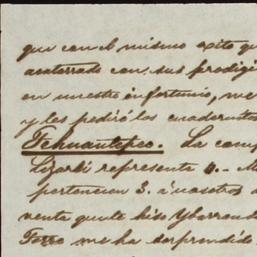 que con el mismo exito qu
aca­terrado con, sus prodigi
en nuestro infortunio, me
y les pediré los cuadernitos
Tehuantepec. La comp
Lizardi representa 4. - M
pertenecian 3. á nosotros
venta que le hizo Ybarrond
Ferro me ha sorprendido